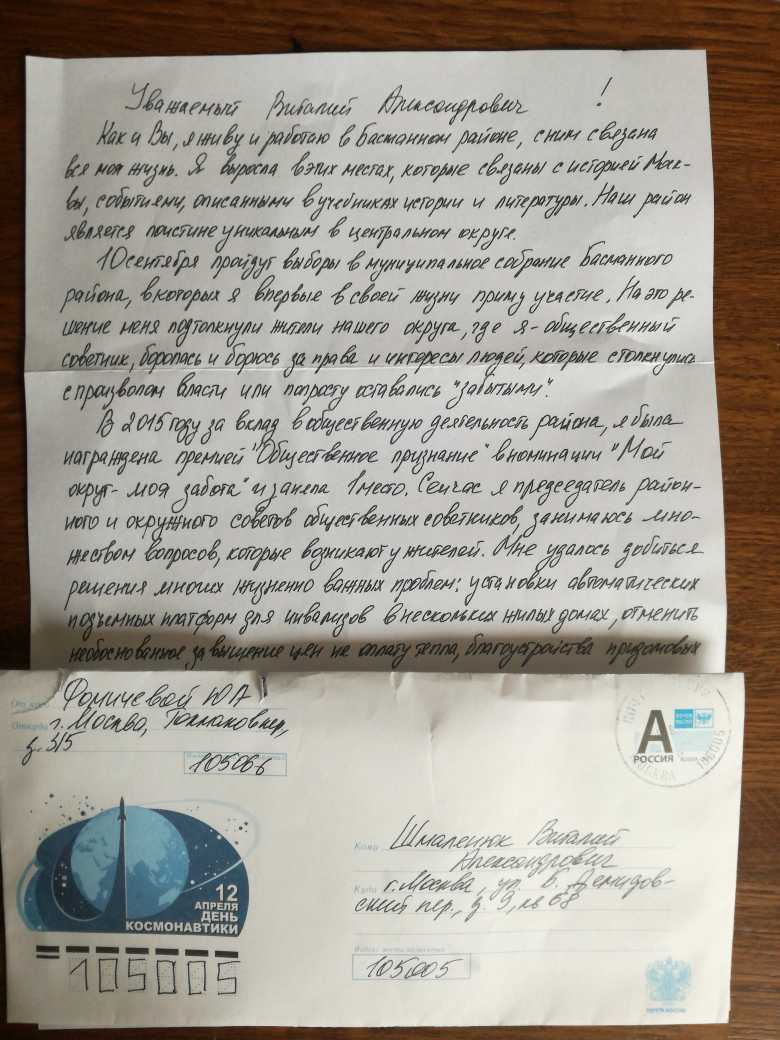 Уважаемый Виталий Александрович !
Как и Вы, я живу и работаю в Басманном районе, с ним связана
вся моя жизнь. Я выросла в этих местах, которые связаны с историей Моск-
вы, событиями, описанными в учебниках истории и литературы. Наш район
является поистине уникальным в центральном округе.
10 сентября пройдут выборы в муниципальное собрание Басманного
района, в которых я впервые в своей жизни приму участие. На это ре-
шение меня подтолкнули жители нашего округа, где я - общественный
советник, боролась и борюсь за права и интересы людей, которые столкнулись
с произволом власти или попросту оставались "забытыми".
В 2015 году за вклад в общественную деятельность района, я была
награждена премией "Общественное признание" в номинации "Мой
округ - моя забота" и заняла 1 место. Сейчас я председатель район-
ного и окружного советов общественных советников, занимаюсь мно-
жеством вопросов, которые возникают у жителей. Мне удалось добиться
решения многих жизненно важных проблем: установки автоматических
подъемных платформ для инвалидов в нескольких жилых домах, отменить
необоснованное завышение цен на оплату тепла, благоустройства придомовых
От кого Фомичевой ЮА
Откуда г. Москва, Токмаков пер,
д. 3/5
105066
А
РОССИЯ
ПОЧТА РОССИИ
МОСКВА 105005
12
АПРЕЛЯ
ДЕНЬ
КОСМОНАВТИКИ
Кому Шмаленюк Виталий
Александрович
Куда г. Москва, ул. Б. Демидов-
ский пер., д. 9, кв 68
105005
105005
ПОЧТА РОССИИ